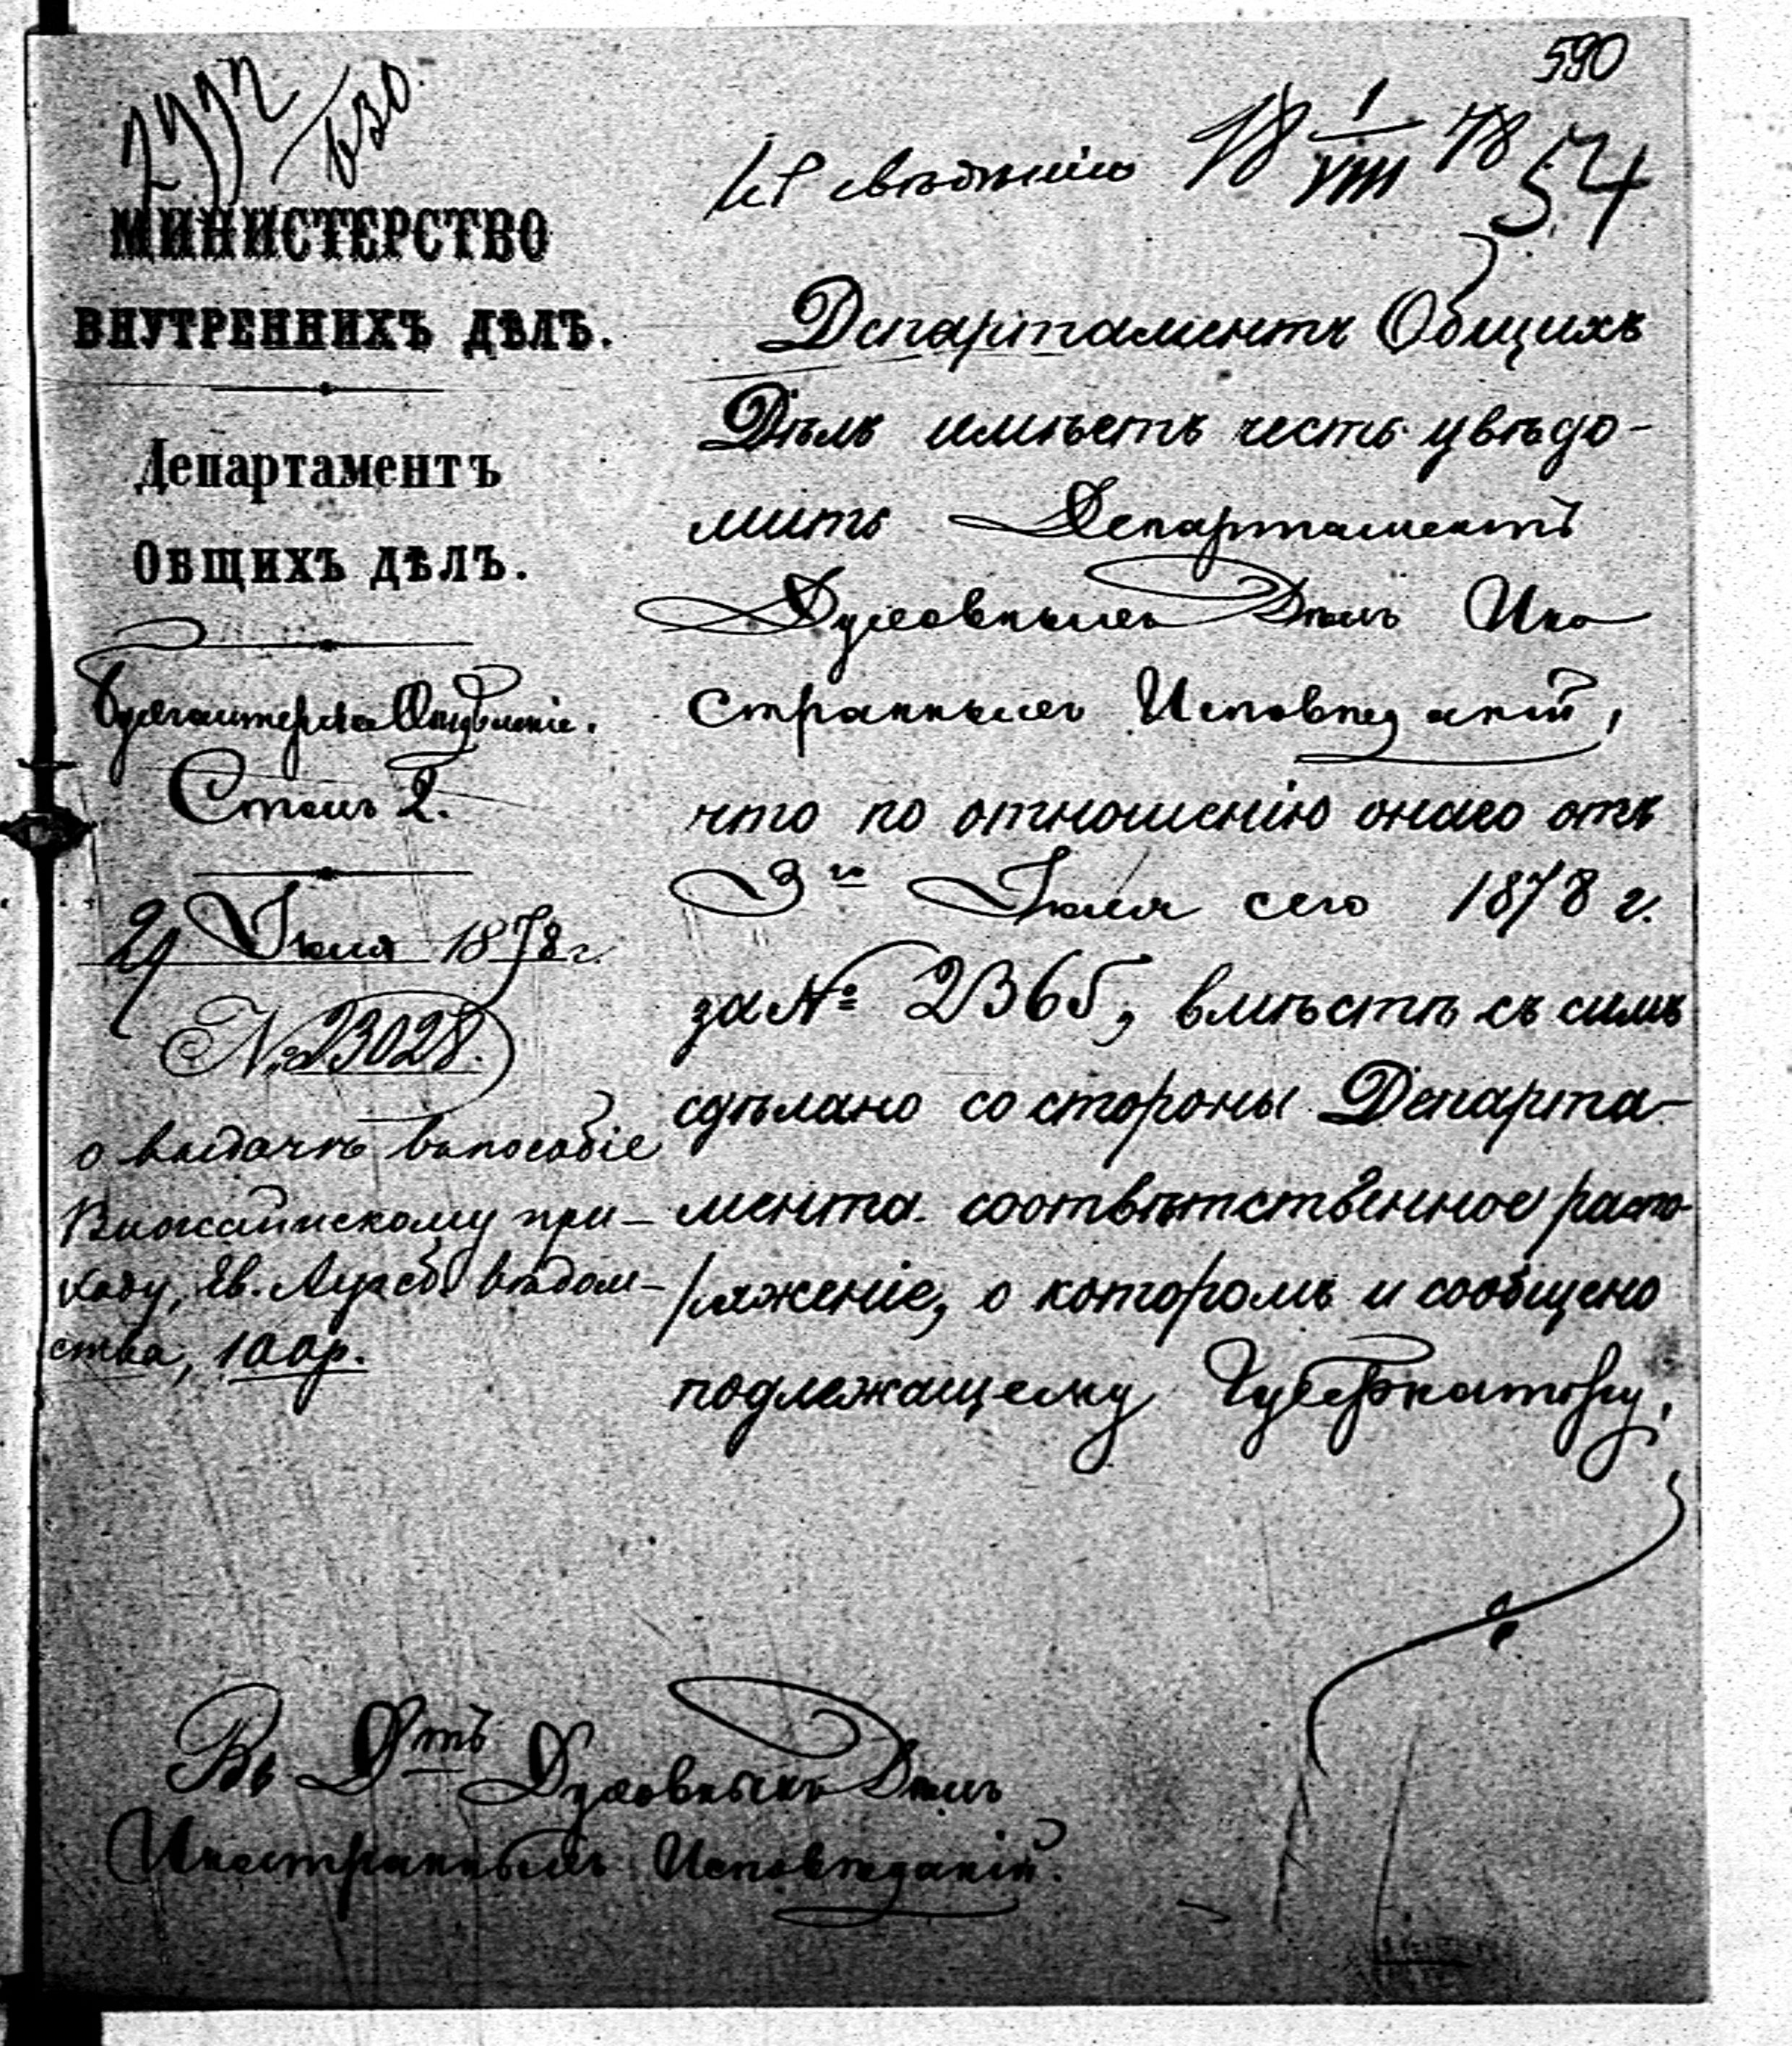 590
2772/630.
Къ свѣдѣнію 18 1/VIII 78
54
МИНИСТЕРСТВО
ВНУТРЕННИХЪ ДѢЛЪ.
Департаментъ
Общихъ дѣлъ.
Бухгалтерское Отдѣленіе.
Столъ 2.
29 Іюля 1878 г.
№ 23028.
о выдачѣ въ пособіе
Вижайнскому при-
ходу, Ев. Аугсб. вѣдом-
ства, 100 р.
Департаментъ Общихъ
Дѣлъ имѣетъ честь увѣдо-
мить Департаментъ
Духовныхъ Дѣлъ Ино
странныхъ Исповѣданій,
что по отношенію онаго отъ
3го Іюля сего 1878 г.
за № 2365, вмѣстѣ съ симъ
сдѣлано со стороны Департа-
мента соотвѣтственное распо-
ряженіе, о которомъ и сообщено
подлежащему Губернатору.
Въ Дтъ Духовныхъ Дѣлъ
Иностранныхъ Исповѣданій.